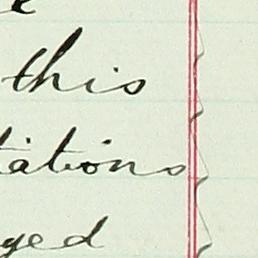 this
tations
ged